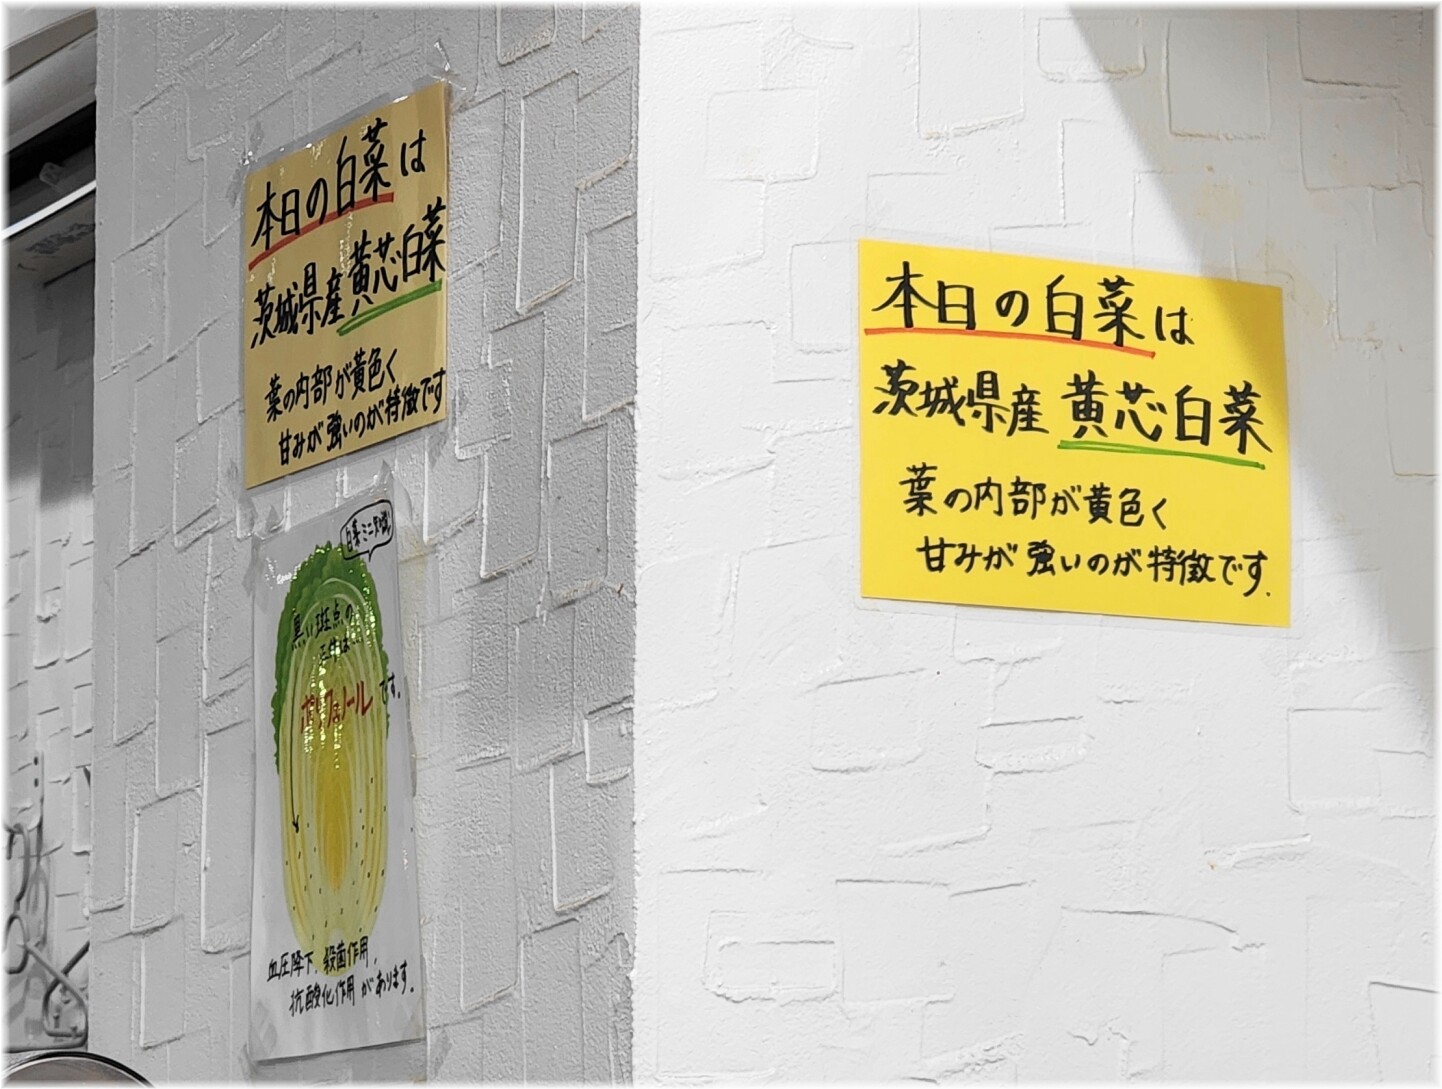 本日の白菜は
茨城県産 黄芯白菜
葉の内部が黄色く
甘みが強いのが特徴です
白菜ミニ知識
黒い斑点の
正体は…
ポリフェノールです。
血圧降下、殺菌作用、
抗酸化作用があります。
本日の白菜は
茨城県産 黄芯白菜
葉の内部が黄色く
甘みが強いのが特徴です.